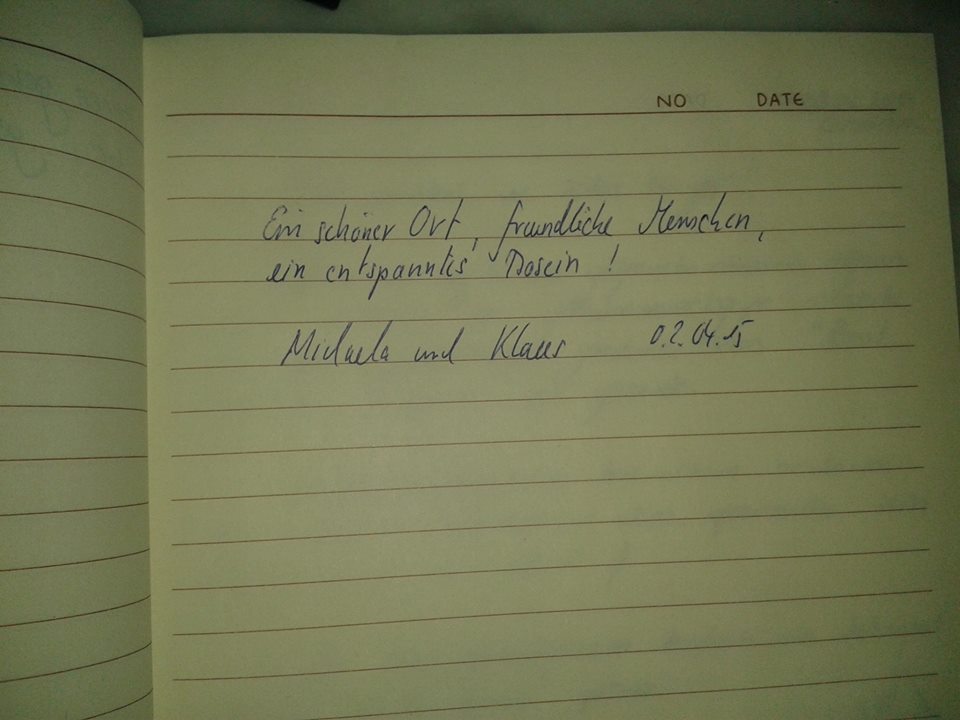 NO DATE
Ein schöner Ort, freundliche Menschen,
ein entspanntes Dasein !
Michaela und Klaus 02.04.15